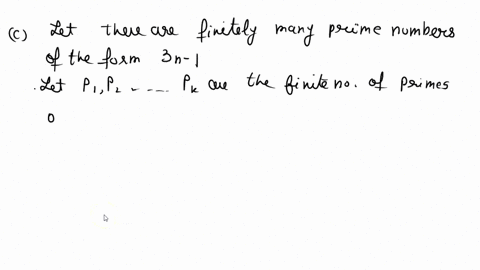 (c) Let there are finitely many prime numbers
of the form 3n-1
. Let P1, P2 ...... Pk are the finite no. of primes
o